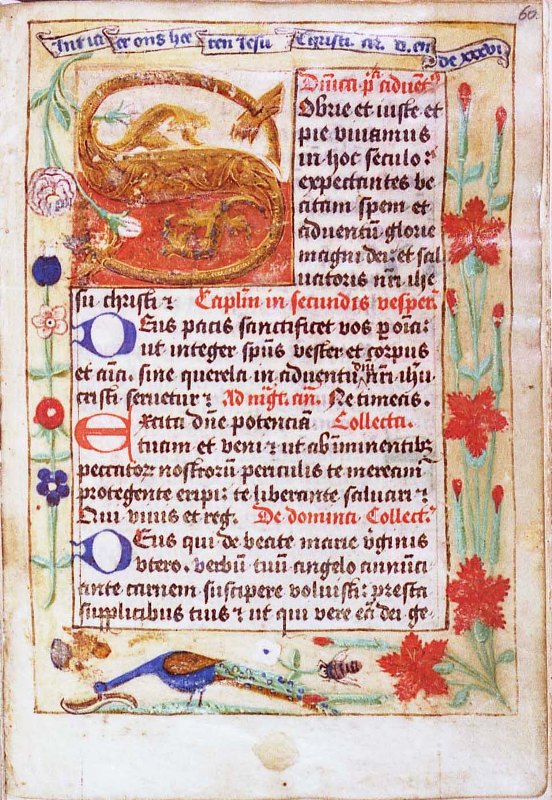 60.
Int iaer ons heeren Iesu Christi xv. c. en
de xxxvi
Dn̄ica p̄a aduēt⁹
Obrie et iuste et
pie viuamus
in hoc seculo:
expectantes be
atam spem et
aduentū glorie
magni dei: et sal
uatoris nr̄i ihe
su christi ⁊ Capl̄m in secundis vesper̄
Deus pacis sanctificet vos p oīa:
ut integer spūs vester et corpus
et aīa. sine querela in aduentu dn̄i nr̄i ihū
cristi seruetur ⁊ Ad mgt̄. an̄. Ne timeas.
Excita dn̄e potenciā Collecta.
tuam et veni ⁊ ut ab īminentibꝫ
peccatoꝝ nostrorū periculis te meream̄
protegente eripi: te liberante saluari ⁊
Qui viuis et reg. De domina Collect.
Deus qui de beate marie v̄ginis
vtero. verbū tuū angelo annūci
ante carnem suscipere voluisti: presta
supplicibus tuis ⁊ ut qui vere eā dei ge-